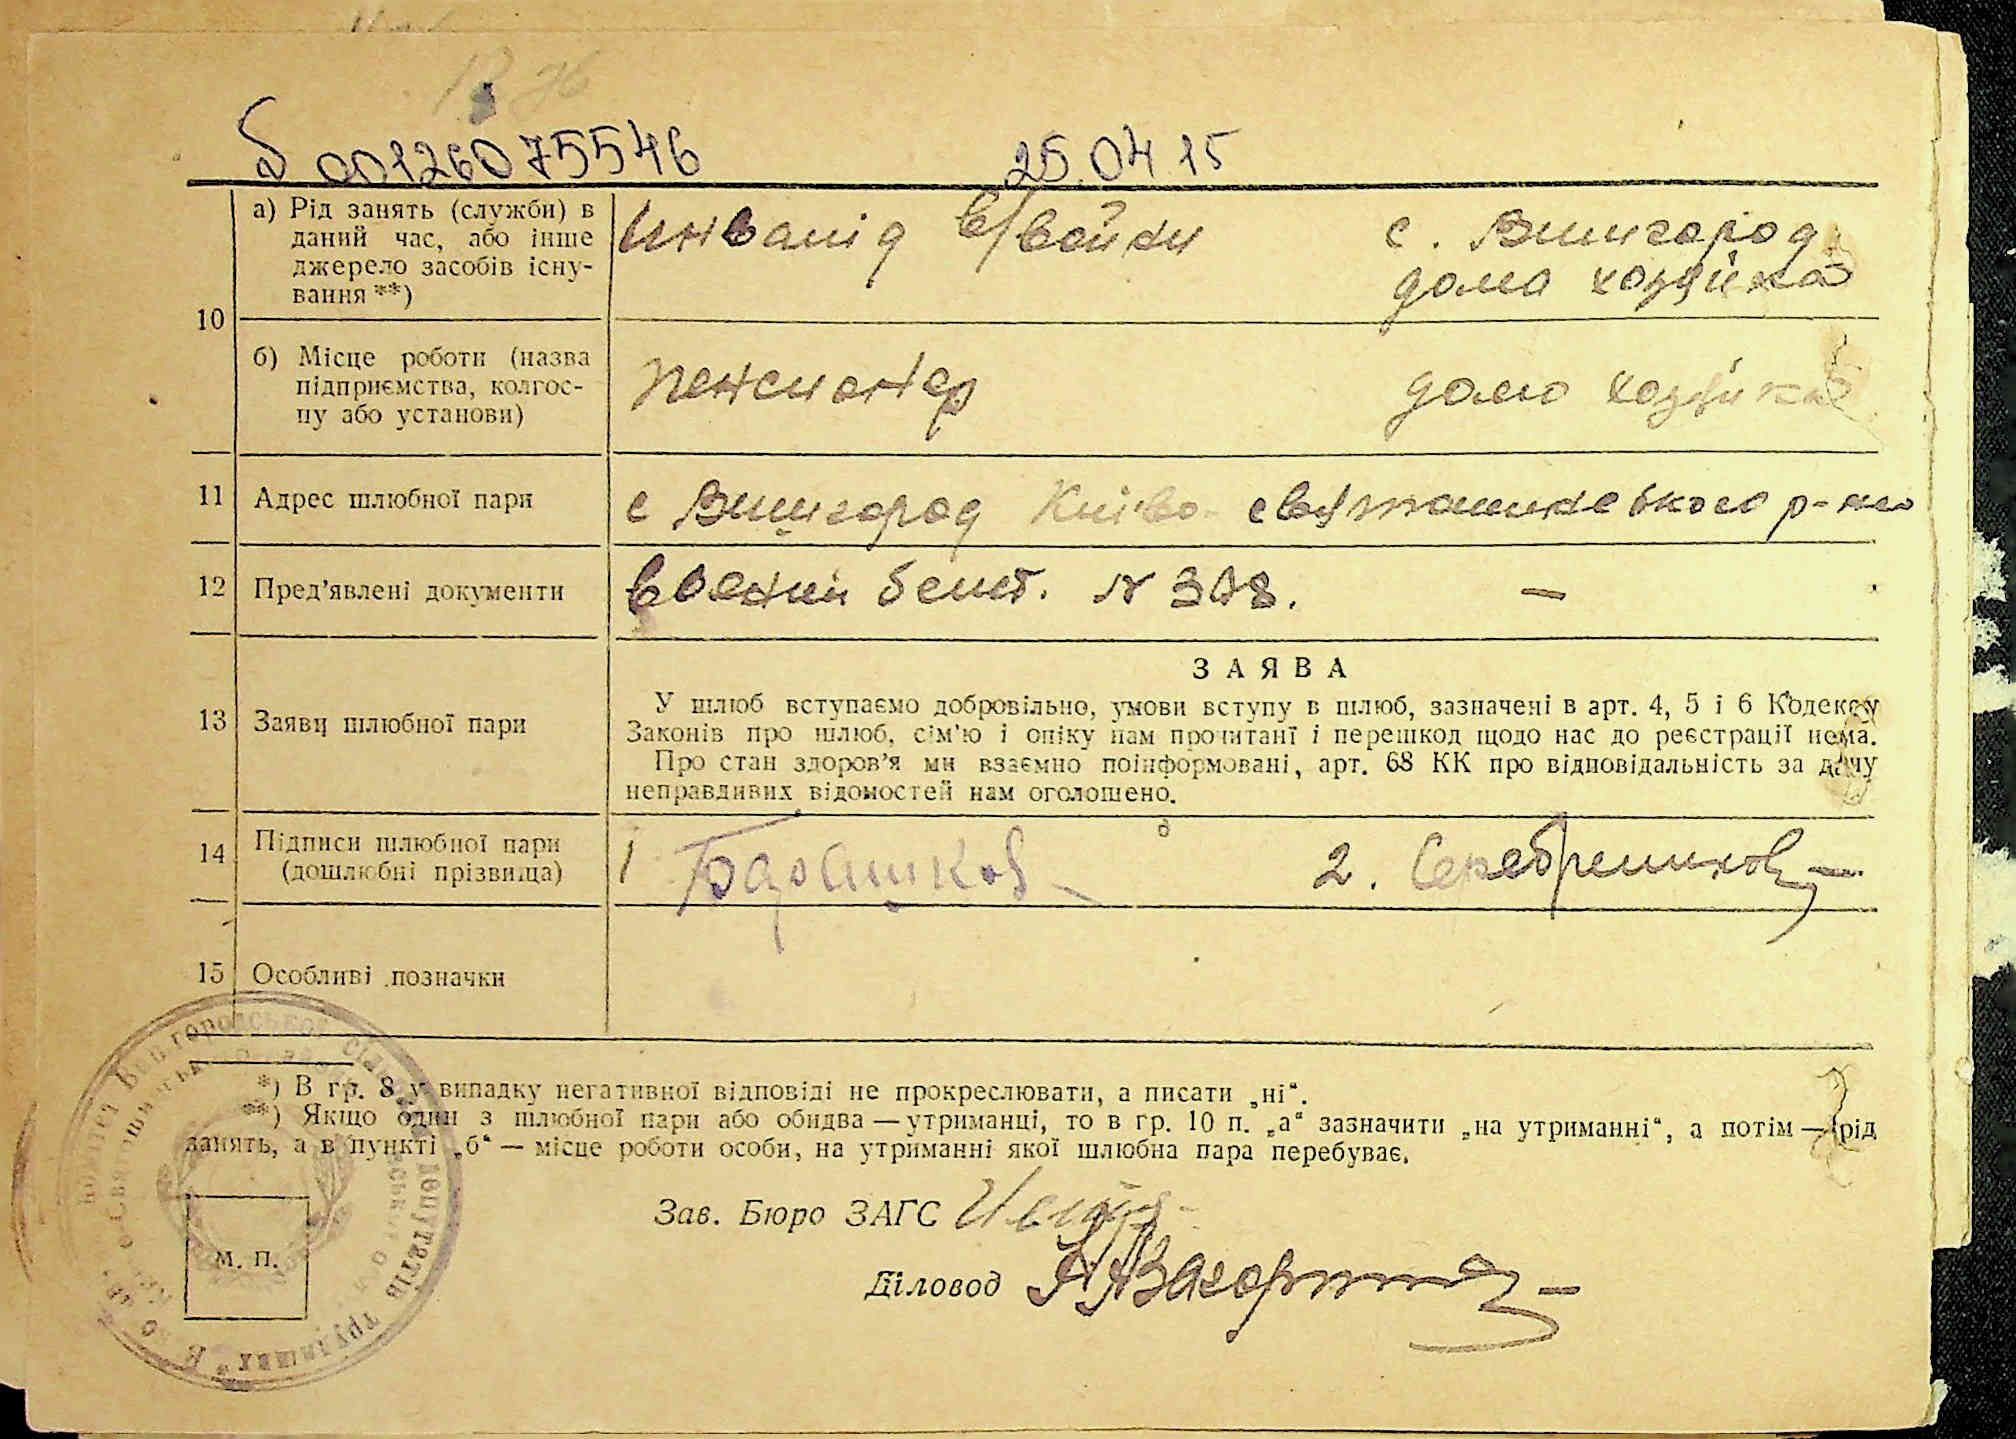 00126075546 25.04.15
10
а) Рід занять (служби) в
даний час, або інше
джерело засобів існу-
вання **)
Інвалід в/войни
с. Вишгород
дома хозяйка
б) Місце роботи (назва
підприємства, колгос-
пу або установи)
Пенсионер
домо хозяйка
11 Адрес шлюбної пари
с Вишгород Києво-святошинського р-но
12 Пред'явлені документи
воєний білет. N 308. —
13 Заяви шлюбної пари
ЗАЯВА
У шлюб вступаємо добровільно, умови вступу в шлюб, зазначені в арт. 4, 5 і 6 Кодексу
Законів про шлюб, сім'ю і опіку нам прочитані і перешкод щодо нас до реєстрації нема.
Про стан здоров'я ми взаємно поінформовані, арт. 68 КК про відповідальність за дачу
неправдивих відомостей нам оголошено.
14 Підписи шлюбної пари
(дошлюбні прізвища)
1 Барашков 2. Серебреников
15 Особливі позначки
*) В гр. 8 у випадку негативної відповіді не прокреслювати, а писати „ні“.
**) Якщо один з шлюбної пари або обидва — утриманці, то в гр. 10 п. „а“ зазначити „на утриманні“, а потім — рід
занять, а в пункті „б“ — місце роботи особи, на утриманні якої шлюбна пара перебуває.
Зав. Бюро ЗАГС
Діловод
М. П.
Вишгородської
депутатів трудящих